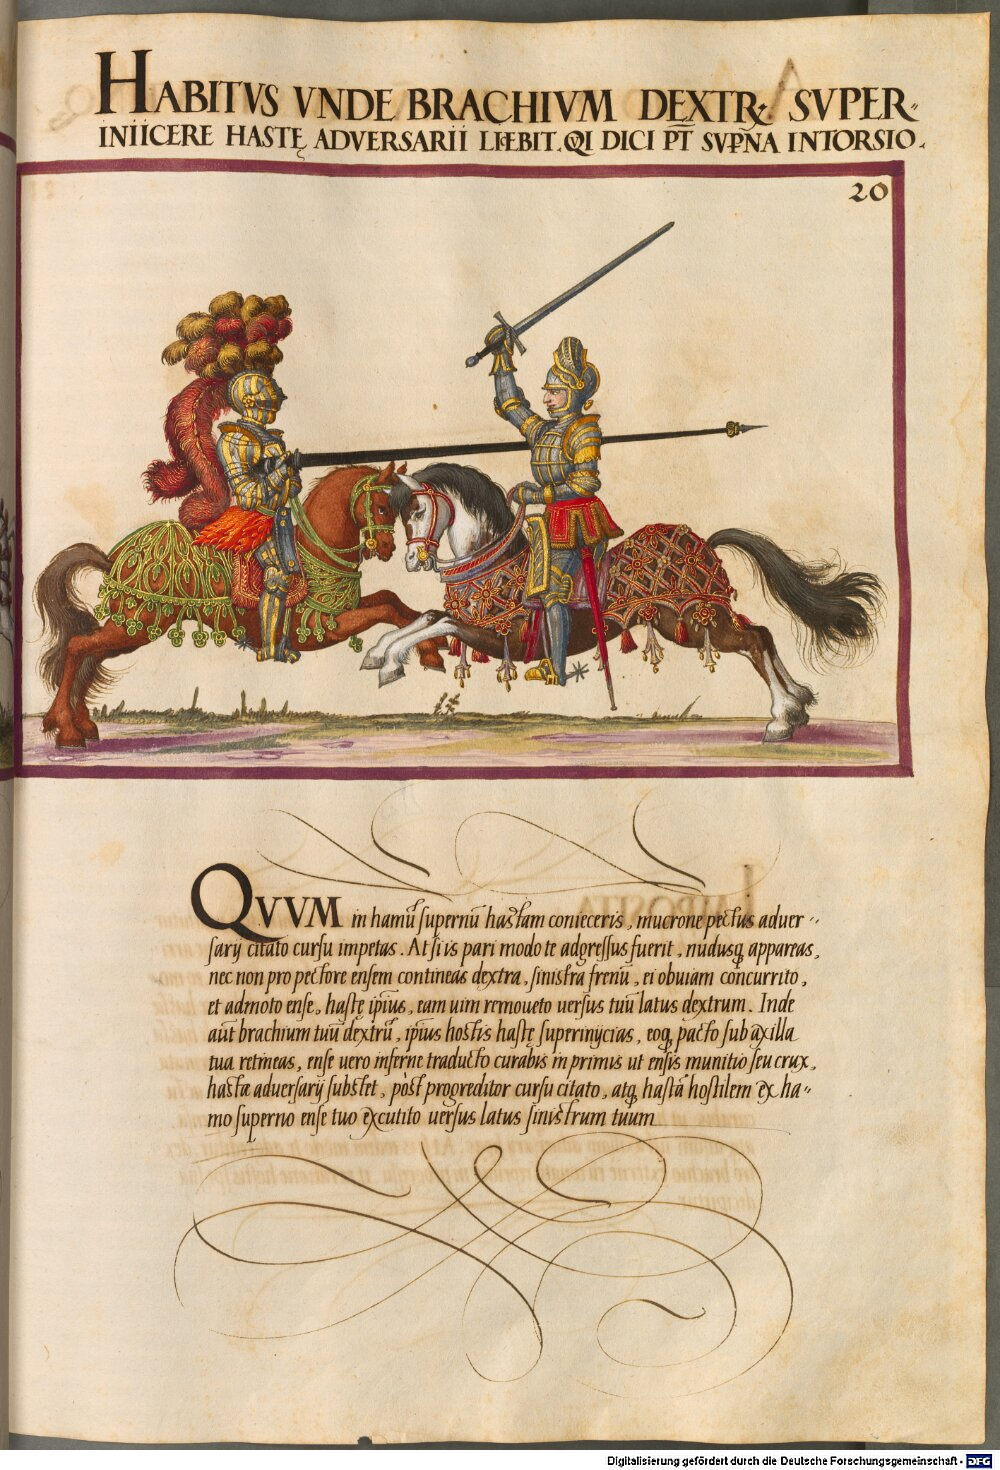 HABITVS VNDE BRACHIVM DEXTR; SVPER-
INIICERE HASTĘ ADVERSARII LICEBIT. QVI DICI PT̄ SVPNA INTORSIO.
20
QVVM in hamū supernū hastam conieceris, mucrone pectus aduer-
sarij citato cursu impetas. At si is pari modo te adgressus fuerit, nudusq; appareas,
nec non pro pectore ensem contineas dextra, sinistra frenū, ei obuiam concurrito,
et admoto ense, hastę ipius, eam uim remoueto uersus tuū latus dextrum. Inde
aūt brachium tuū dextrū, ipius hostis hastę superinijcias, eoq; pacto sub axilla
tua retineas, ense uero inferne traducto curabis in primis ut ensis munitio seu crux,
hastæ aduersarij substet, pòst progreditor cursu citato, atq; hastā hostilem ex ha-
mo superno ense tuo excutito uersus latus sinistrum tuum
Digitalisierung gefördert durch die Deutsche Forschungsgemeinschaft - DFG